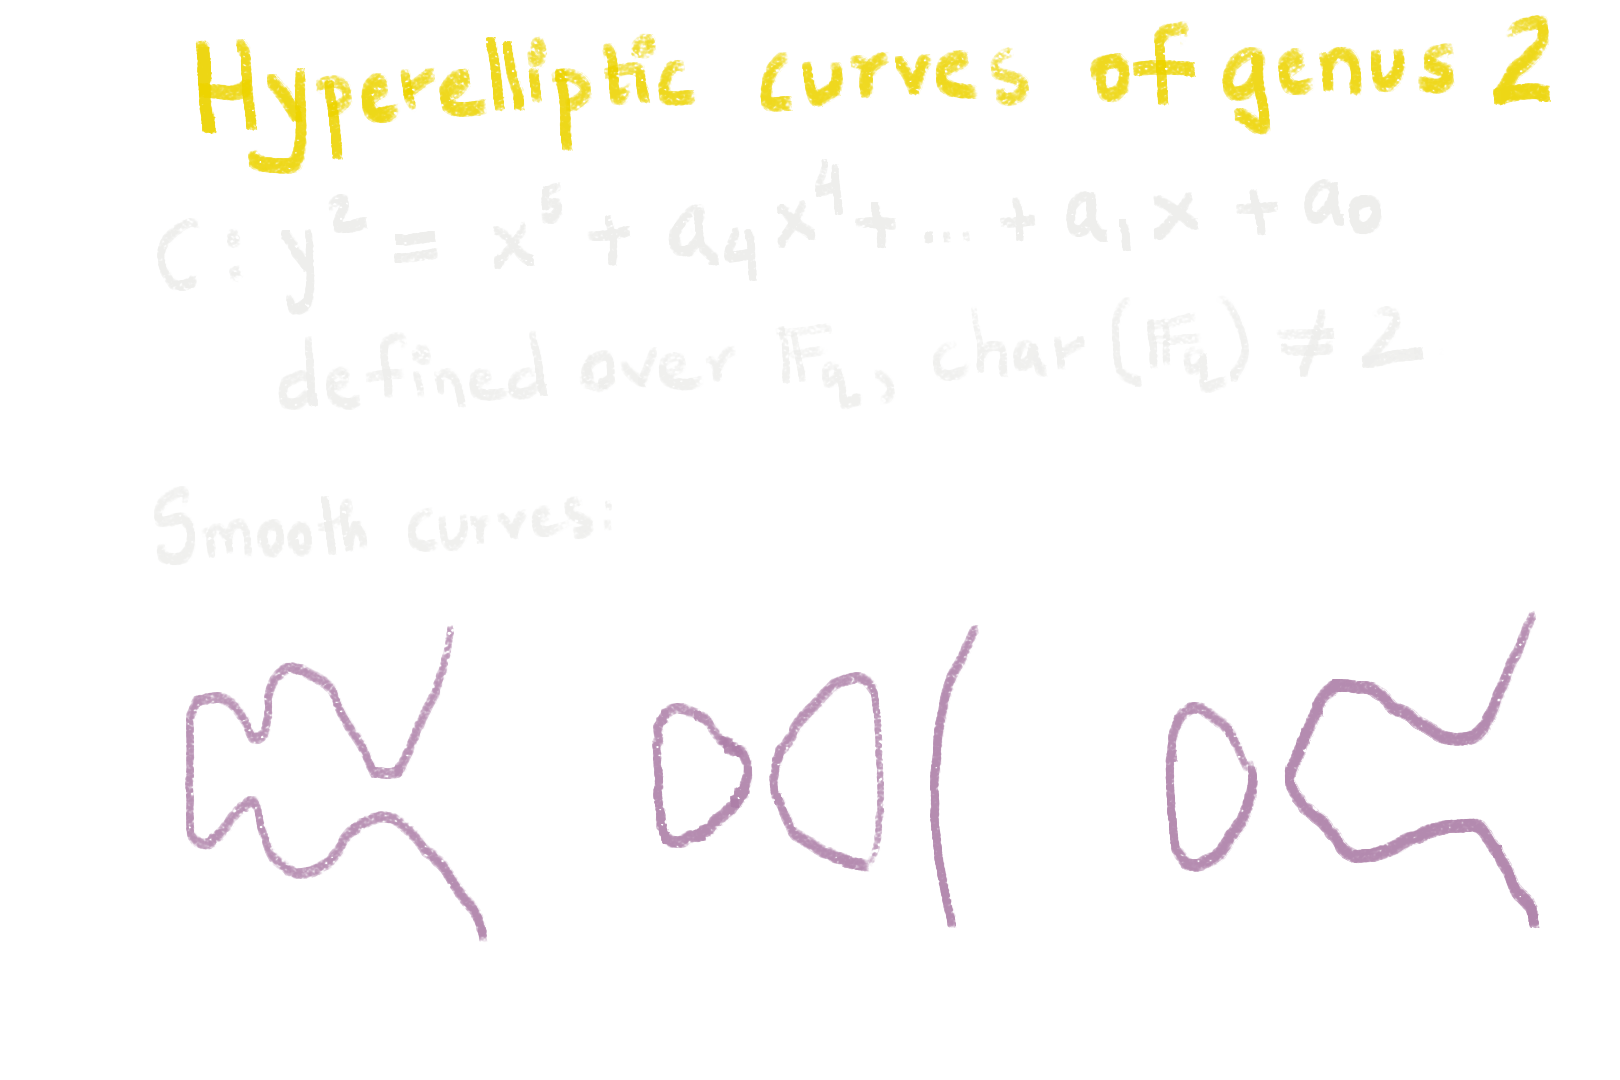 Hyperelliptic curves of genus 2
C: y² = x⁵ + a₄x⁴ + ... + a₁x + a₀
defined over 𝔽q, char(𝔽q) ≠ 2
Smooth curves: